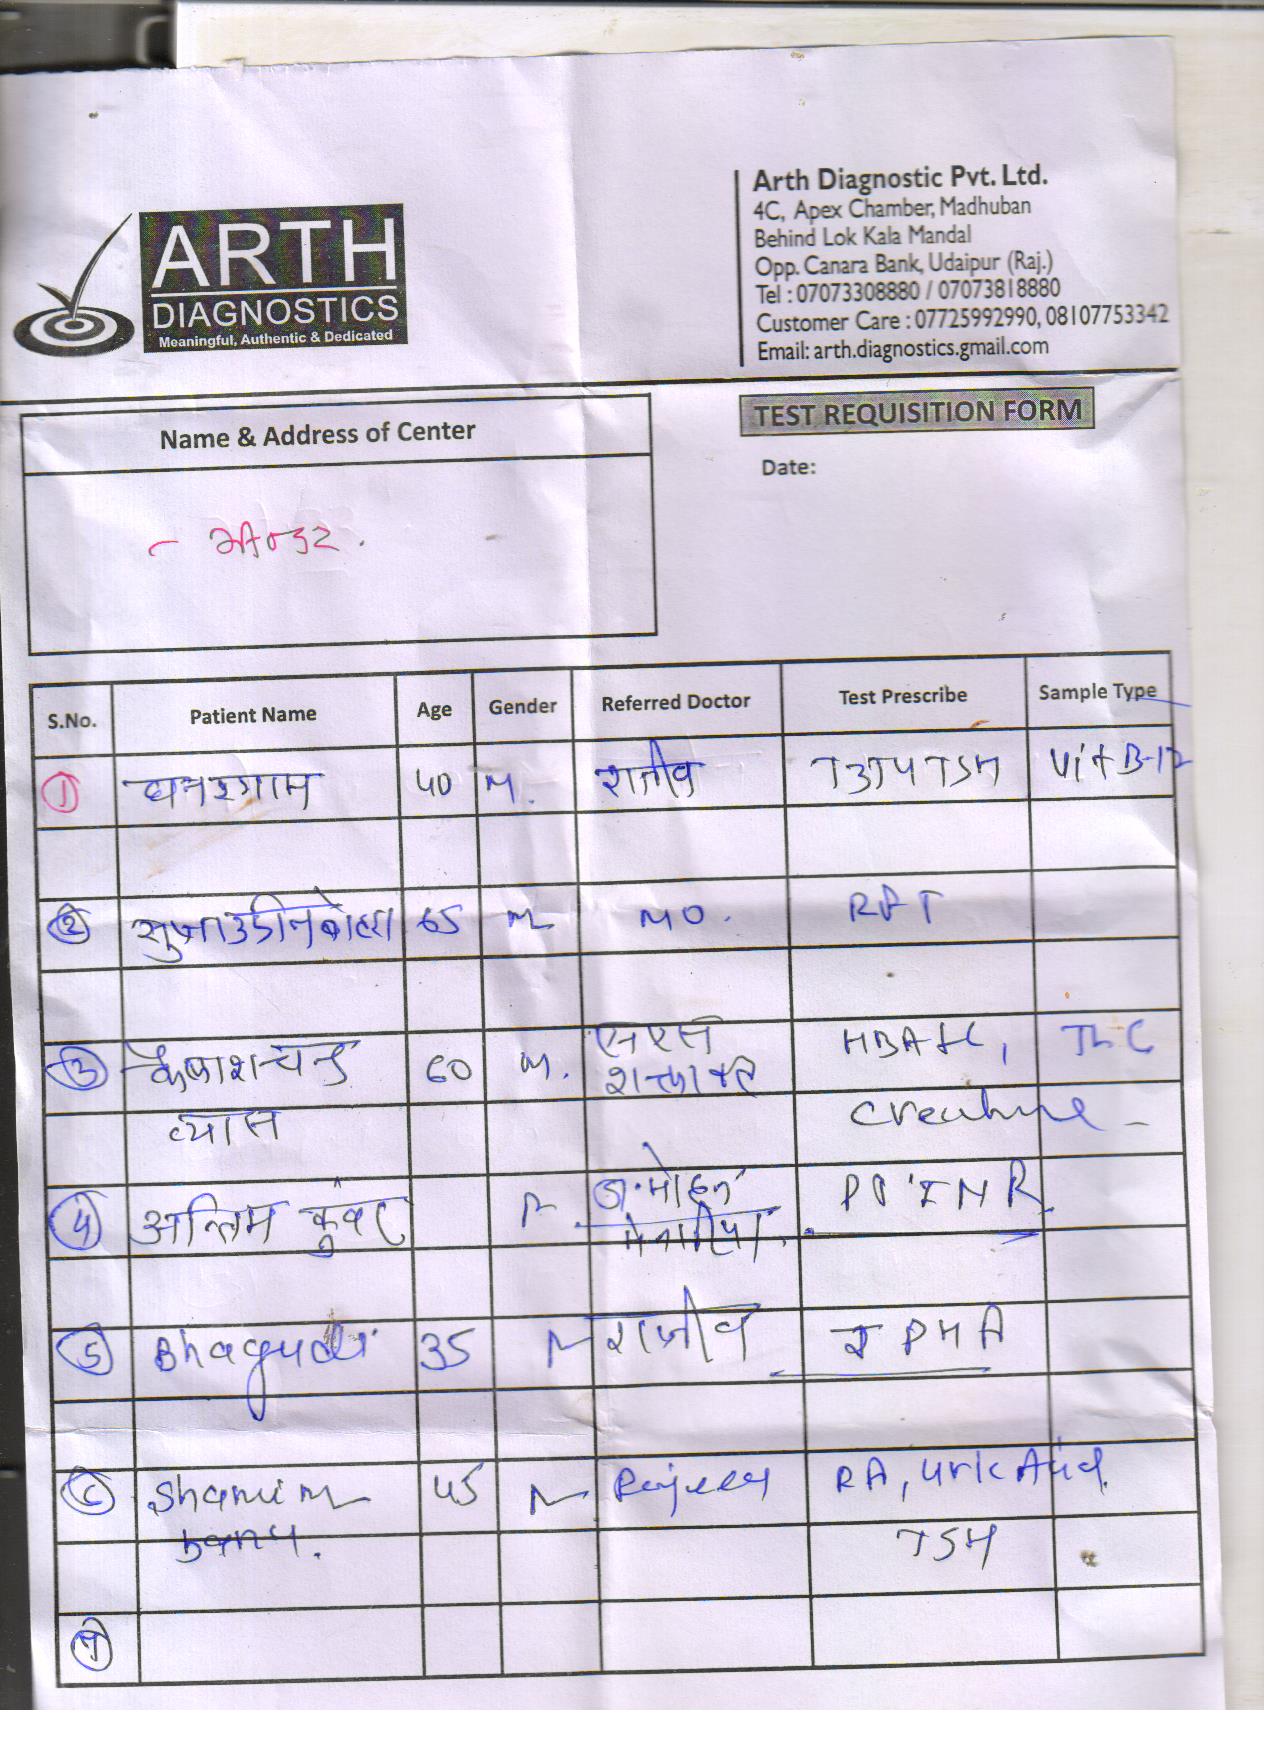 ARTH
DIAGNOSTICS
Meaningful, Authentic & Dedicated
Arth Diagnostic Pvt. Ltd.
4C, Apex Chamber, Madhuban
Behind Lok Kala Mandal
Opp. Canara Bank, Udaipur (Raj.)
Tel : 07073308880 / 07073818880
Customer Care : 07725992990, 08107753342
Email: arth.diagnostics.gmail.com
Name & Address of Center
TEST REQUISITION FORM
Date:
S.No. Patient Name Age Gender Referred Doctor Test Prescribe Sample Type
1 घनश्याम 40 M. राजीव T3T4TSH Vit B-12
2 65 M MO. RFT
3 कैलाशचन्द्र 60 M. एसएस HBA1C, TLC
व्यास Creatinine -
4 अन्तिम कुंवर डा. मोहन PT INR
मेनारिया
5 35 राजीव
6 Shamim 45 Rajeev RA, Uric Acid.
banu. TSH
7